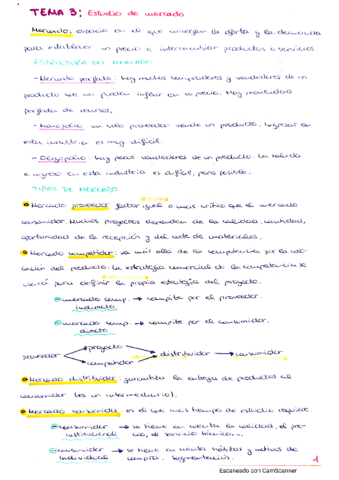 TEMA 3: Estudio de mercado
Mercado: espacio en el que convergen la oferta y la demanda
para establecer un precio e intercambiar productos o servicios.
ESTRUCTURA DEL MERCADO
- Mercado perfecto: hay muchos compradores y vendedores de un
producto que no pueden influir en su precio. Hay movilidad
perfecta de recursos.
- Monopolio: un solo proveedor vende un producto. Ingresar en
esta industria es muy difícil.
- Oligopolio: hay pocos vendedores de un producto. La salida
e ingreso en esta industria es difícil, pero posible.
TIPOS DE MERCADO
Mercado proveedor: factor igual o más crítico que el mercado
consumidor. Muchos proyectos dependen de la calidad, cantidad,
oportunidad de la recepción y del coste de materiales.
Mercado competidor: va más allá de la competencia por la
del producto. La estrategia comercial de la competencia
para definir la propia estrategia del proyecto.
mercado comp. → compite por el proveedor.
indirecto
mercado comp. → compite por el consumidor.
directo
proyecto
proveedor distribuidor → consumidor
competidor
Mercado distribuidor: garantiza la entrega de productos al
consumidor (es un intermediario).
Mercado consumidor: es el que más tiempo de estudio requiere.
consumidor → se tiene en cuenta la calidad, el pre-
institucional cio, el servicio técnico...
consumidor → se tiene en cuenta hábitos y motivos de
individual compra. Segmentación.
1
Escaneado con CamScanner